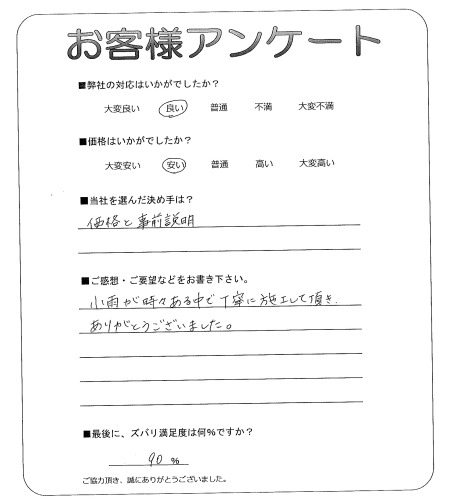 お客様アンケート
■弊社の対応はいかがでしたか?
大変良い 良い 普通 不満 大変不満
■価格はいかがでしたか?
大変安い 安い 普通 高い 大変高い
■当社を選んだ決め手は?
価格と事前説明
■ご感想・ご要望などをお書き下さい。
小雨が時々ある中で丁寧に施工して頂き、
ありがとうございました。
■最後に、ズバリ満足度は何%ですか?
90 %
ご協力頂き、誠にありがとうございました。